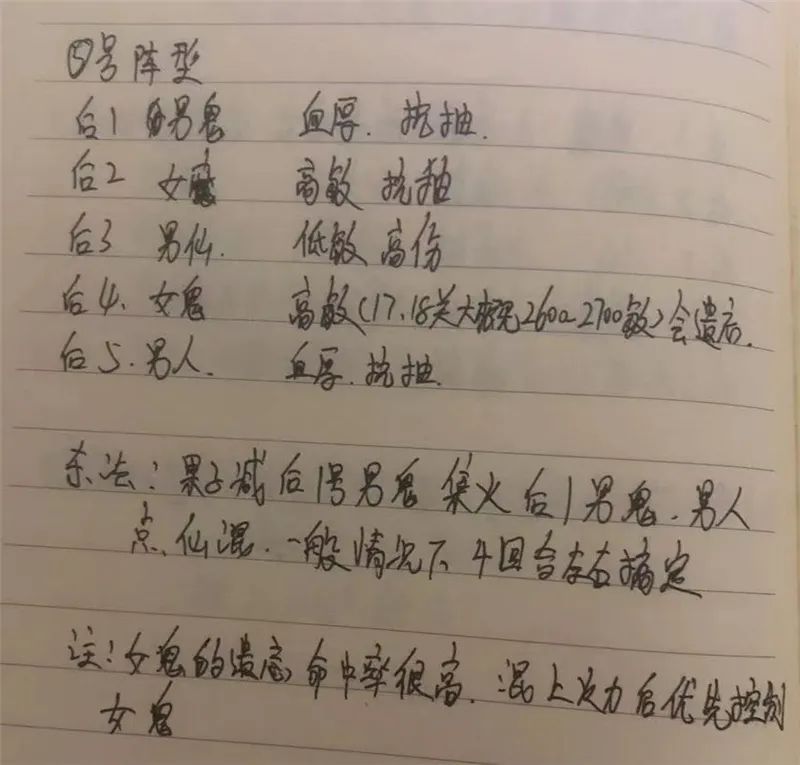 ⑤号阵型
后1 男鬼 血厚. 抗抽.
后2 女魔 高敏 抗抽
后3 男仙. 低敏 高伤
后4. 女鬼 高敏(17.18关大概是2600-2700敏)会遗忘.
后5. 男人. 血厚. 抗抽.
杀法: 果子减后1号男鬼 集火后1男鬼. 男人
点仙混. 一般情况下 4回合左右搞定
注: 女鬼的遗忘命中率很高. 混上火力后优先控制
女鬼